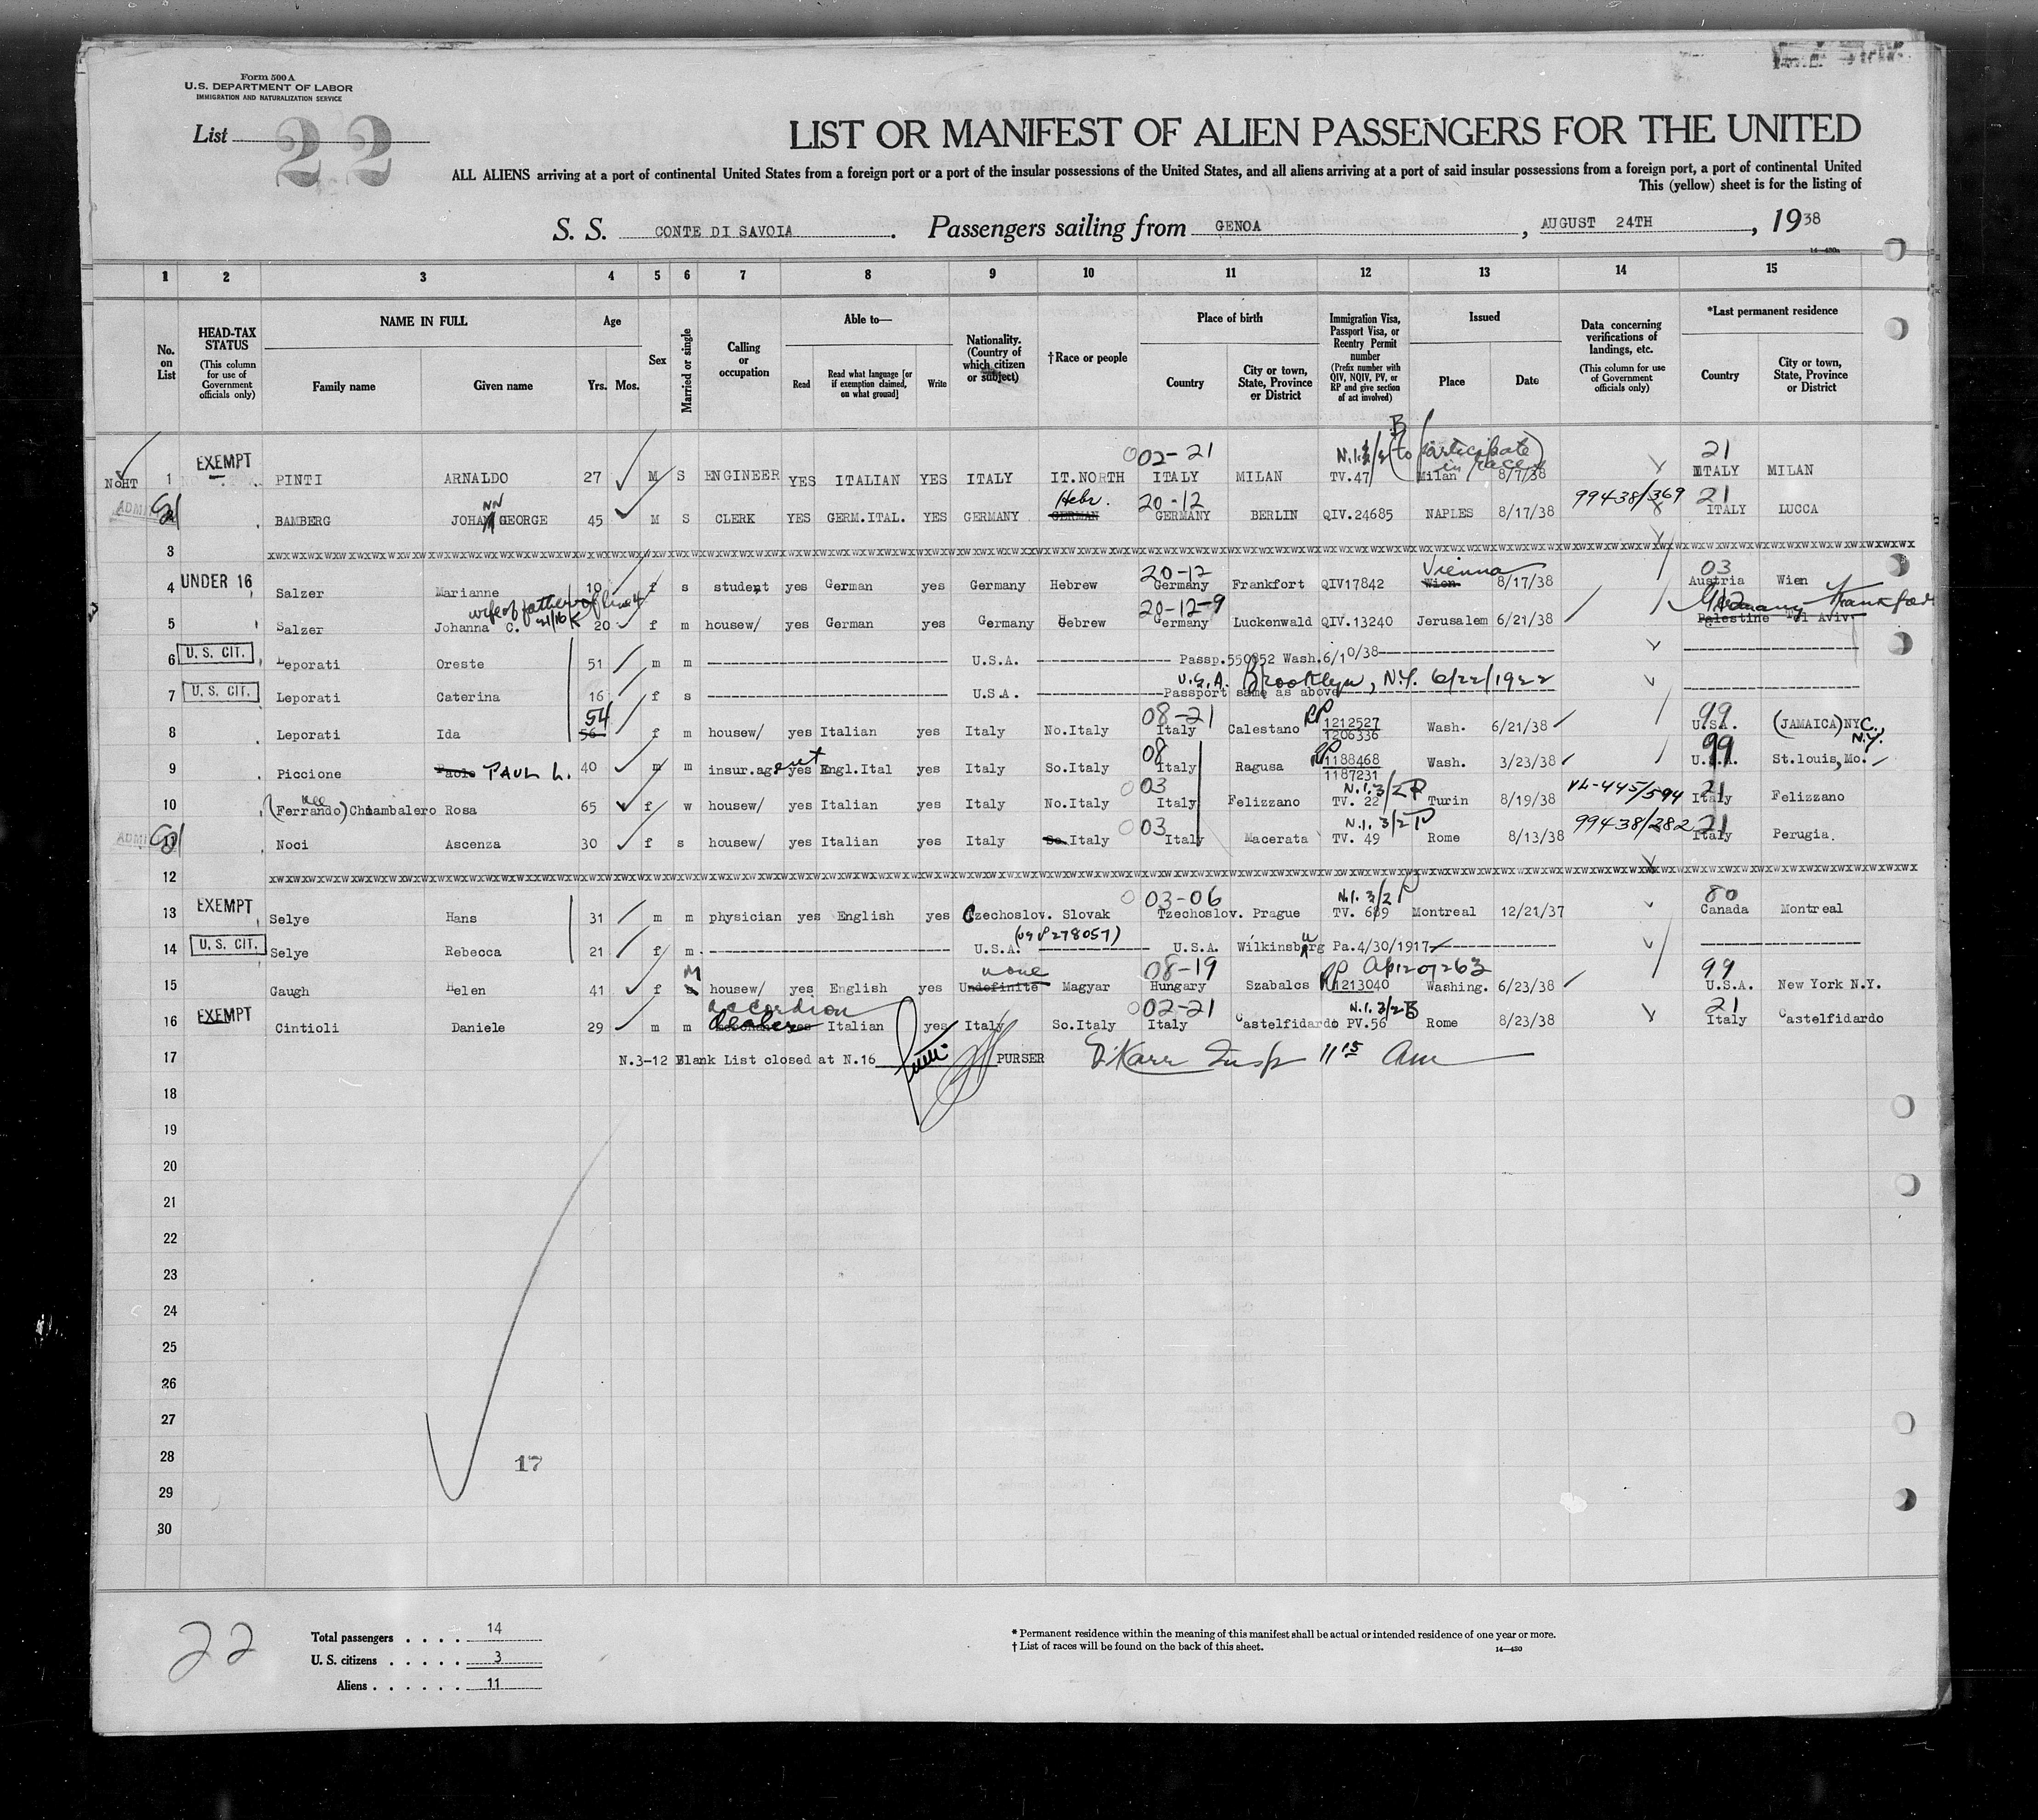 Form 500 A
U.S. DEPARTMENT OF LABOR
IMMIGRATION AND NATURALIZATION SERVICE
List 22
LIST OR MANIFEST OF ALIEN PASSENGERS FOR THE UNITED
ALL ALIENS arriving at a port of continental United States from a foreign port or a port of the insular possessions of the United States, and all aliens arriving at a port of said insular possessions from a foreign port, a port of continental United
This (yellow) sheet is for the listing of
S. S. CONTE DI SAVOIA. Passengers sailing from GENOA, AUGUST 24TH, 1938
14—430a
1 2 3 4 5 6 7 8 9 10 11 12 13 14 15
No. on List
HEAD-TAX STATUS (This column for use of Government officials only)
NAME IN FULL Family name Given name
Age Yrs. Mos.
Sex
Married or single
Calling or occupation
Able to— Read Read what language [or if exemption claimed, on what ground] Write
Nationality. (Country of which citizen or subject)
†Race or people
Place of birth Country City or town, State, Province or District
Immigration Visa, Passport Visa, or Reentry Permit number (Prefix number with QIV, NQIV, PV, or RP and give section of act involved)
Issued Place Date
Data concerning verifications of landings, etc. (This column for use of Government officials only)
*Last permanent residence Country City or town, State, Province or District
02-21 N.I.3/2 B (to participate in races) 21
NOHT 1 EXEMPT PINTI ARNALDO 27 M S ENGINEER YES ITALIAN YES ITALY IT.NORTH ITALY MILAN TV.47 Milan 8/7/38 ITALY MILAN
NN Hebr. 20-12 99438/369 21
2 BAMBERG JOHAN GEORGE 45 M S CLERK YES GERM.ITAL. YES GERMANY GERMAN GERMANY BERLIN QIV.24685 NAPLES 8/17/38 ITALY LUCCA
3
20-12 Vienna 03
4 UNDER 16 Salzer Marianne 10 f s student yes German yes Germany Hebrew Germany Frankfort QIV17842 Wien 8/17/38 Austria Wien
wife of father of line 4 20-12-9 Germany Frankfort
5 Salzer Johanna C. 20 f m housew/ yes German yes Germany Hebrew Germany Luckenwald QIV.13240 Jerusalem 6/21/38 Palestine Tel Aviv
6 U. S. CIT. Leporati Oreste 51 m m U.S.A. Passp.550852 Wash.6/10/38
U.S.A. Brooklyn, N.Y. 6/22/1922
7 U. S. CIT. Leporati Caterina 16 f s U.S.A. Passport same as above
54 08-21 RP 99
8 Leporati Ida 56 f m housew/ yes Italian yes Italy No.Italy Italy Calestano 1212527 1206336 Wash. 6/21/38 U.S.A. (JAMAICA) NYC. N.Y.
08 RP 99
9 Piccione Paolo PAUL L. 40 m m insur.agent yes Engl.Ital yes Italy So.Italy Italy Ragusa 1188468 1187231 Wash. 3/23/38 U.S.A. St.louis, Mo.
nee 03 N.I.3/2 P VL-445/594 21
10 (Ferrando) Chiambalero Rosa 65 f w housew/ yes Italian yes Italy No.Italy Italy Felizzano TV. 22 Turin 8/19/38 Italy Felizzano
03 N.I.3/2 P 99438/282 21
11 Noci Ascenza 30 f s housew/ yes Italian yes Italy So.Italy Italy Macerata TV. 49 Rome 8/13/38 Italy Perugia.
12
03-06 N.I.3/2 P 80
13 EXEMPT Selye Hans 31 m m physician yes English yes Czechoslov. Slovak Tzechoslov. Prague TV. 689 Montreal 12/21/37 Canada Montreal
14 U. S. CIT. Selye Rebecca 21 f m U.S.A. (USP278057) U.S.A. Wilkinsburg Pa.4/30/1917
M none 08-19 RP 99
15 Gaugh Helen 41 f s housew/ yes English yes Undefinite Magyar Hungary Szabalcs 1213040 Washing. 6/23/38 U.S.A. New York N.Y.
accordion dealer 02-21 N.I.3/2 B 21
16 EXEMPT Cintioli Daniele 29 m m yes Italian yes Italy So.Italy Italy Castelfidardo PV.56 Rome 8/23/38 Italy Castelfidardo
17 N.3-12 Blank List closed at N.16 PURSER Karr Insp 11 15 Am
18
19
20
21
22
23
24
25
26
27
28
17
29
30
22
Total passengers . . . . 14
U. S. citizens . . . . . 3
Aliens . . . . . . 11
* Permanent residence within the meaning of this manifest shall be actual or intended residence of one year or more.
† List of races will be found on the back of this sheet.
14—430